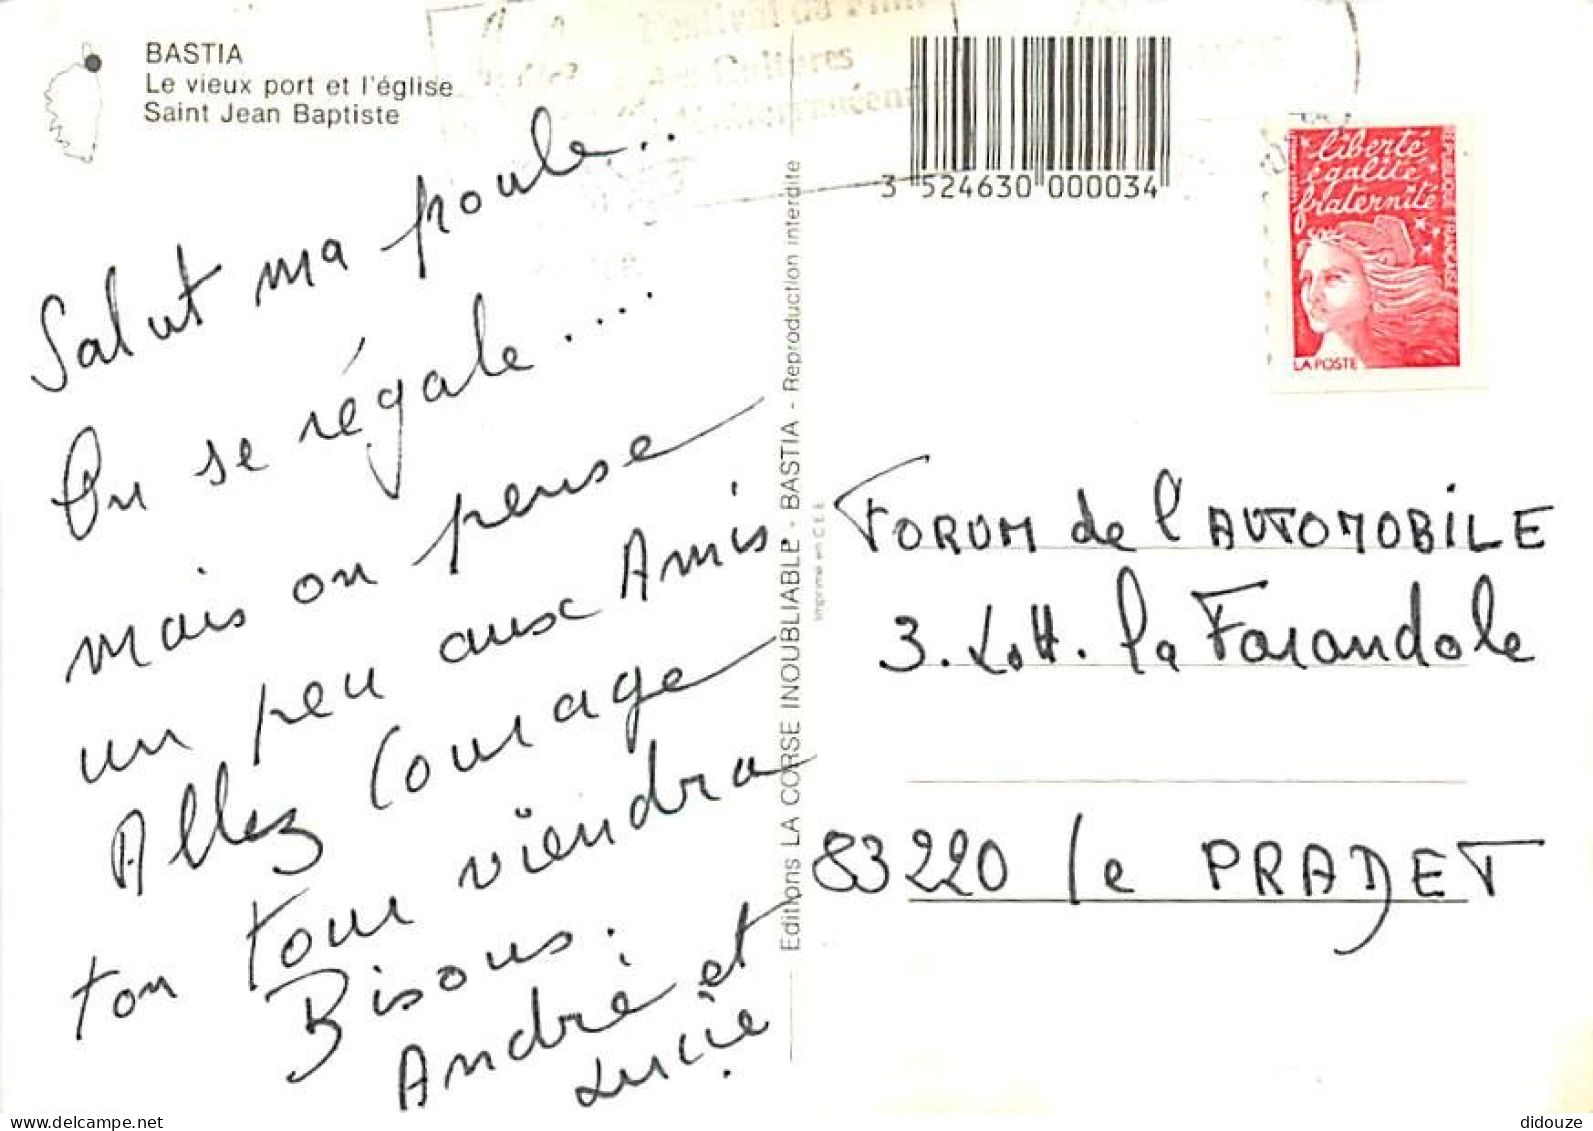 BASTIA
Le vieux port et l'église
Saint Jean Baptiste
Salut ma poule...
On se régale....
mais on pense
un peu aux Amis
Allez Courage
ton tour viendra
Bisous.
André et
Lucie
Editions LA CORSE INOUBLIABLE - BASTIA - Reproduction interdite
Imprimé en C.E.E.
Festival du Film
des Cultures
3 524630 000034
liberté
égalité
fraternité
RÉPUBLIQUE FRANÇAISE
LA POSTE
FORUM de l'AUTOMOBILE
3. Lott. la Farandole
83220 le PRADET
delcampe.net
didouze